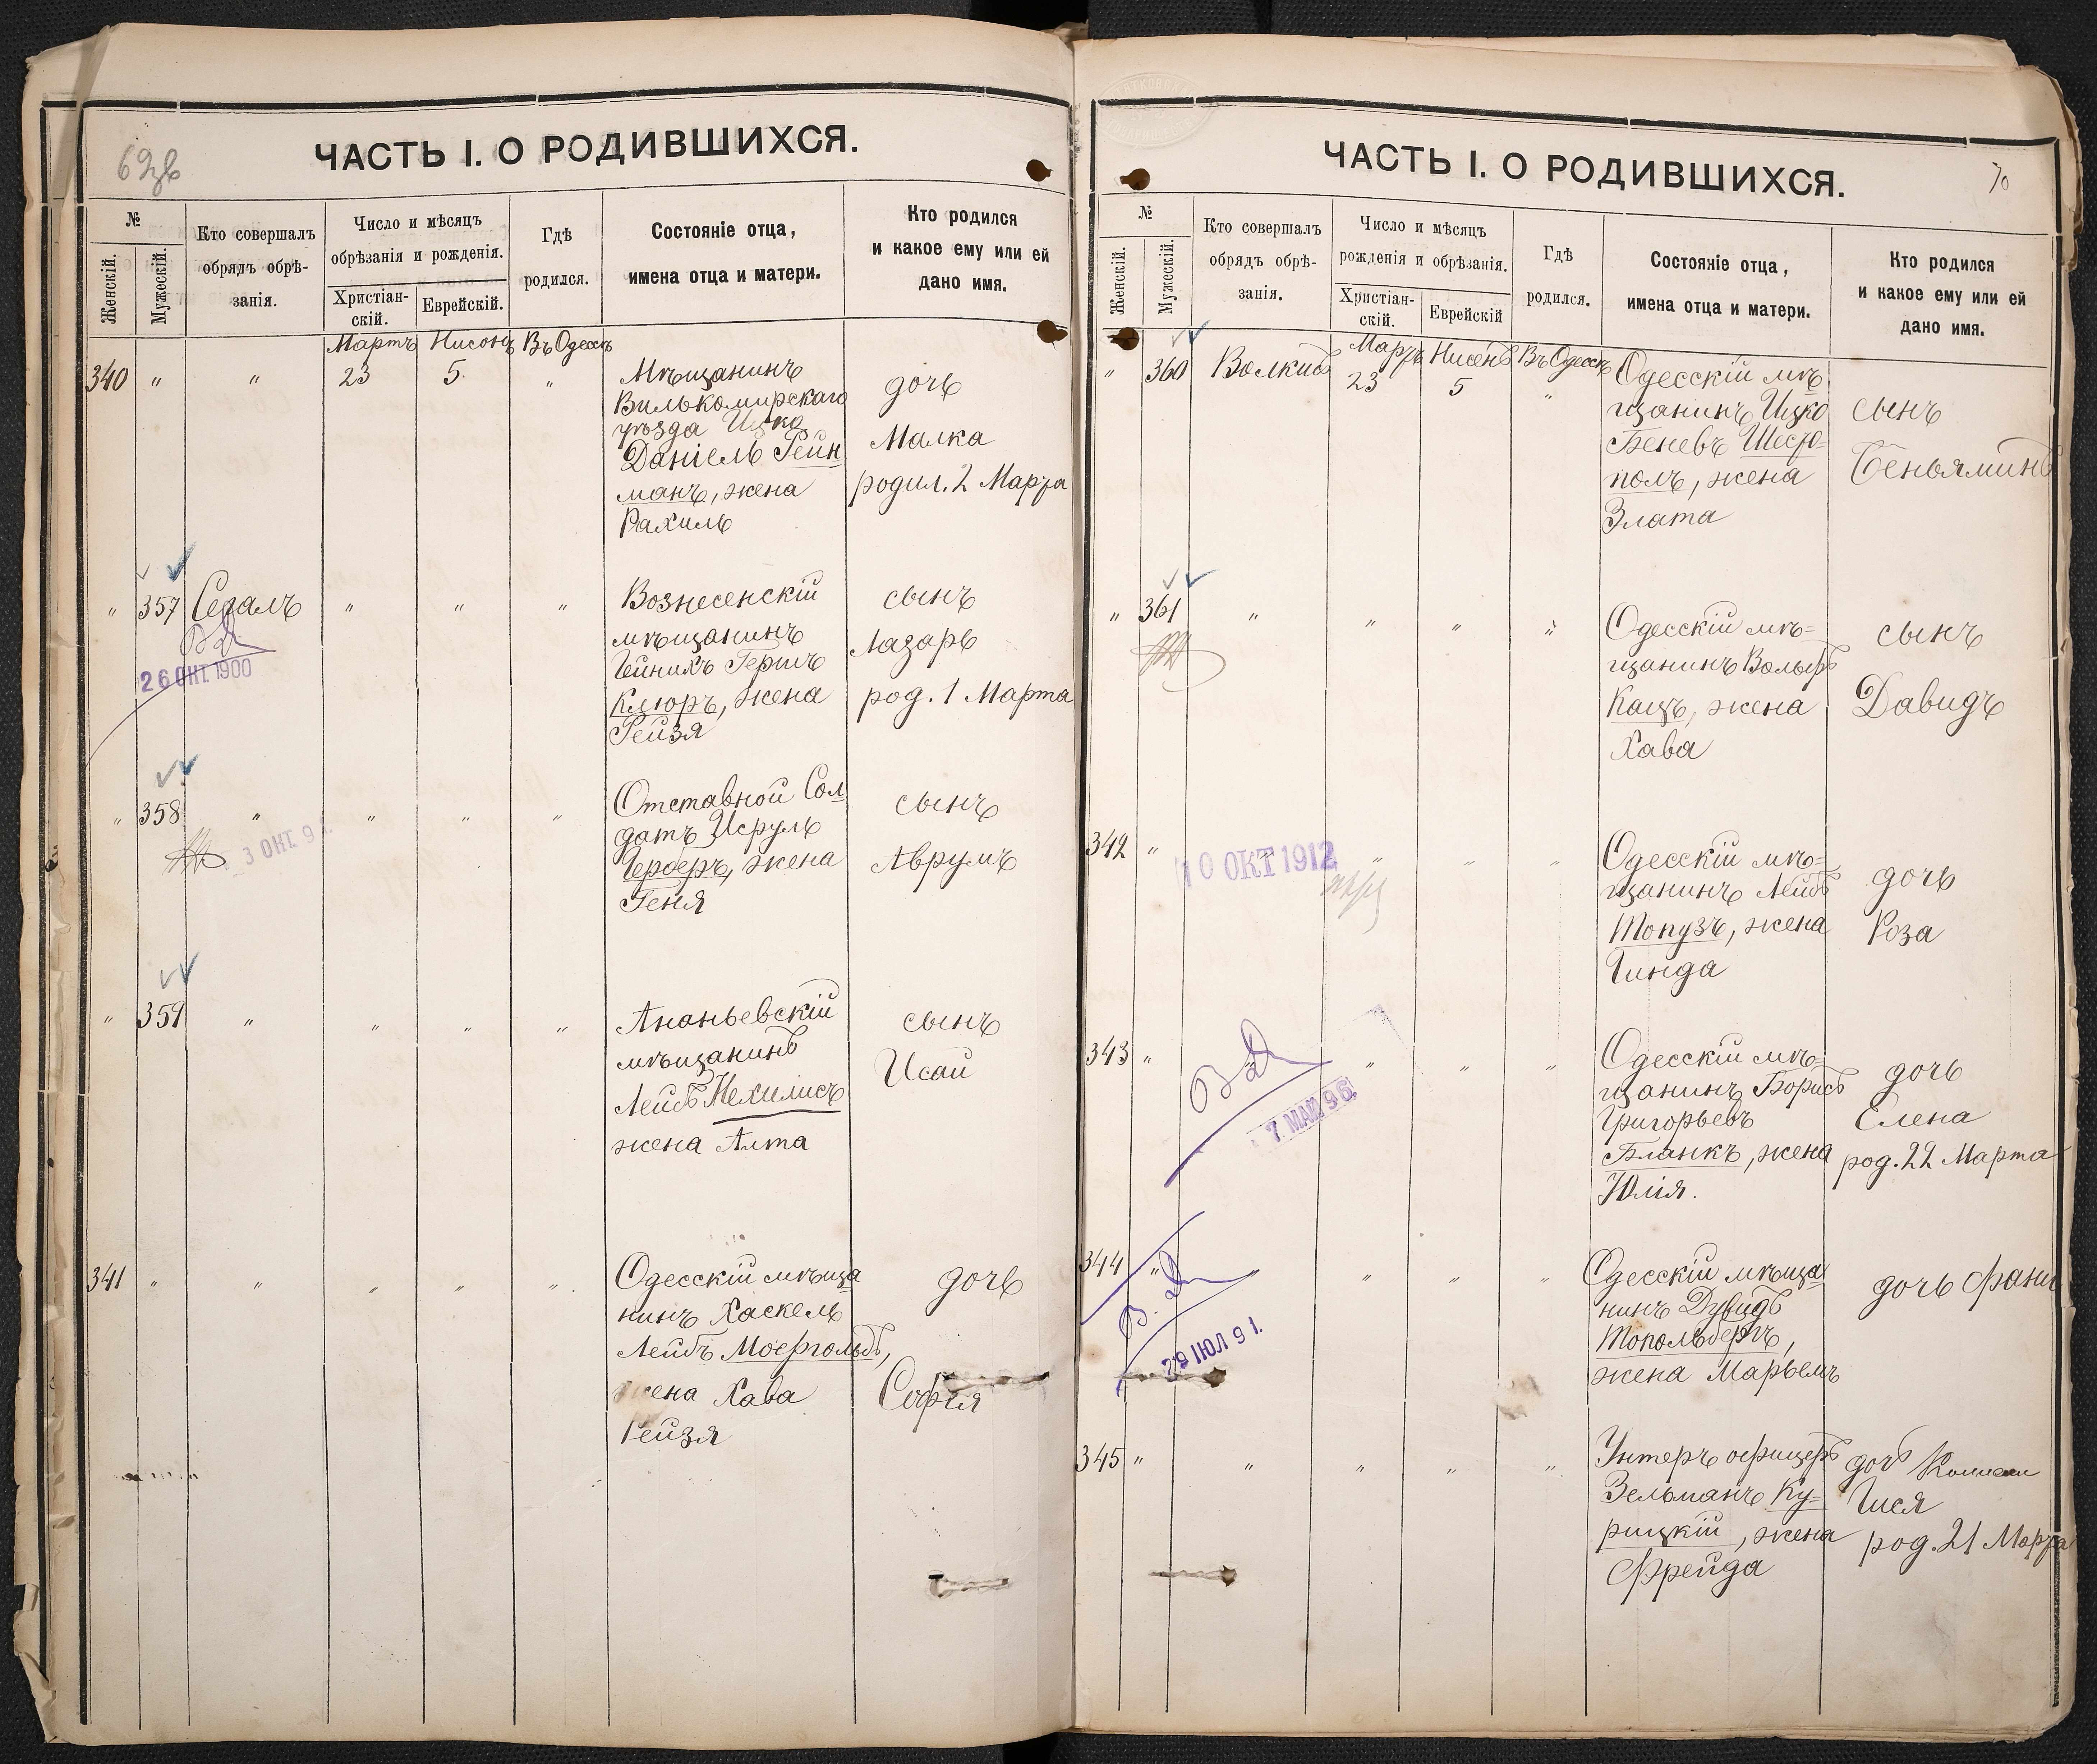 69зв
ЧАСТЬ I. О РОДИВШИХСЯ.
№
Женскій.
Мужескій.
Кто совершалъ
обрядъ обрѣ-
занія.
Число и мѣсяцъ
обрѣзанія и рожденія.
Христіан-
скій.
Еврейскій.
Гдѣ
родился.
Состояніе отца,
имена отца и матери.
Кто родился
и какое ему или ей
дано имя.
Мартъ Нисонъ Въ Одессѣ
340 " " 23 5 "
Мѣщанинъ
Вилькомирскаго
уѣзда Ицко
Даніель Рейн
манъ, жена
Рахиль
дочь
Малка
родил. 2 Марта
" 357 Сегалъ " " "
26 ОКТ 1900
Вознесенскій
мѣщанинъ
Гейнихъ Гершъ
Клюръ, жена
Рейзя
сынъ
Лазарь
род. 1 Марта
" 358 " " " "
3 ОКТ. 9
Отставной Сол
датъ Исруль
Герберъ, жена
Геня
сынъ
Аврумъ
" 359 " " " "
Ананьевскій
мѣщанинъ
Лейбъ Нехилисъ
жена Алта
сынъ
Исай
341 " " " " "
Одесскій мѣща
нинъ Хаскель
Лейбъ Моергольдъ,
жена Хава
Рейзя
дочь
Софія
70
ЧАСТЬ I. О РОДИВШИХСЯ.
№
Женскій.
Мужескій.
Кто совершалъ
обрядъ обрѣ-
занія.
Число и мѣсяцъ
рожденія и обрѣзанія.
Христіан-
скій.
Еврейскій
Гдѣ
родился.
Состояніе отца,
имена отца и матери.
Кто родился
и какое ему или ей
дано имя.
Мартъ Нисенъ Въ Одессѣ
" 360 Волкивъ 23 5 "
Одесскій мѣ
щанинъ Ицко
Беневъ Шесто-
полъ, жена
Злата
сынъ
Беньяминъ
" 361 " " " "
Одесскій мѣ=
щанинъ Вольфъ
Кацъ, жена
Хава
сынъ
Давидъ
342 " " " " "
10 ОКТ 1912
Одесскій мѣ=
щанинъ Лейбъ
Топузъ, жена
Гинда
дочь
Роза
343 " " " " "
7 МАЙ 96
Одесскій мѣ=
щанинъ Борисъ
Григорьевъ
Бланкъ, жена
Юлія.
дочь
Елена
род. 22 Марта
344 " " " " "
29 ІЮЛ 91.
Одесскій мѣща
нинъ Дувидъ
Топольбергъ,
жена Марьемъ
дочь Фани
345 " " " " "
Унтеръ офицеръ
Зельманъ Ку-
рицкій, жена
Фрейда
дочь
род. 21 Марта